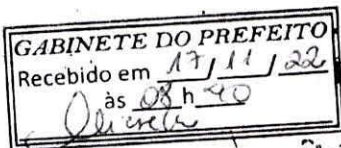 GABINETE DO PREFEITO
Recebido em 17/11/22
às 08 h 40